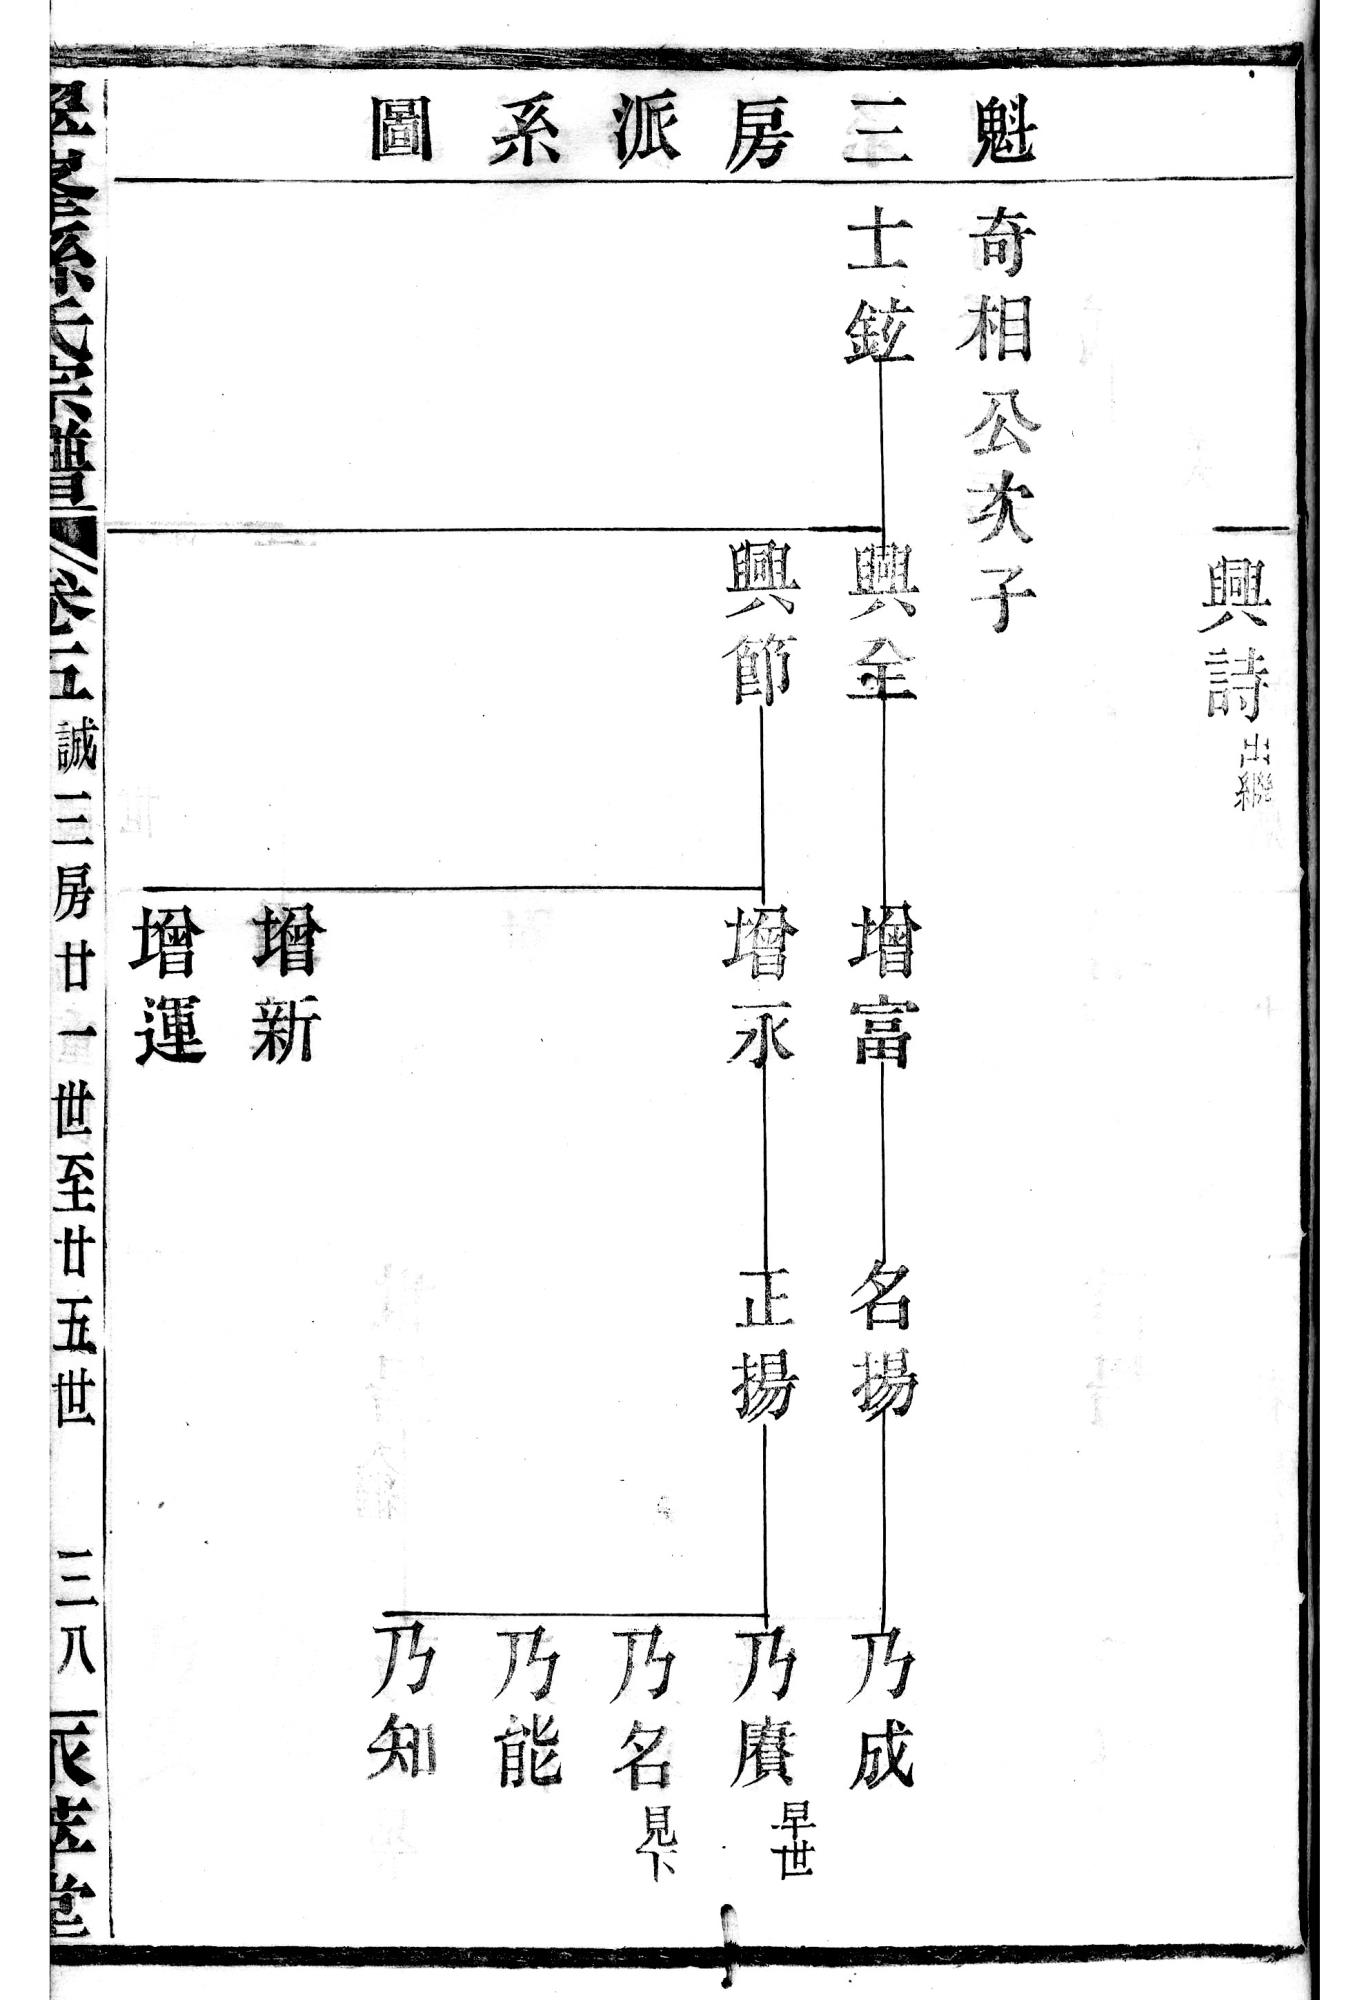 魁三房派系圖
興詩出繼
奇相公次子
士鉉
興全
興節
增富
增永
增新
增運
名揚
正揚
乃成
乃賡早世
乃名見下
乃能
乃知
孫氏宗譜
卷五
誠三房廿一世至廿五世
三八
堂